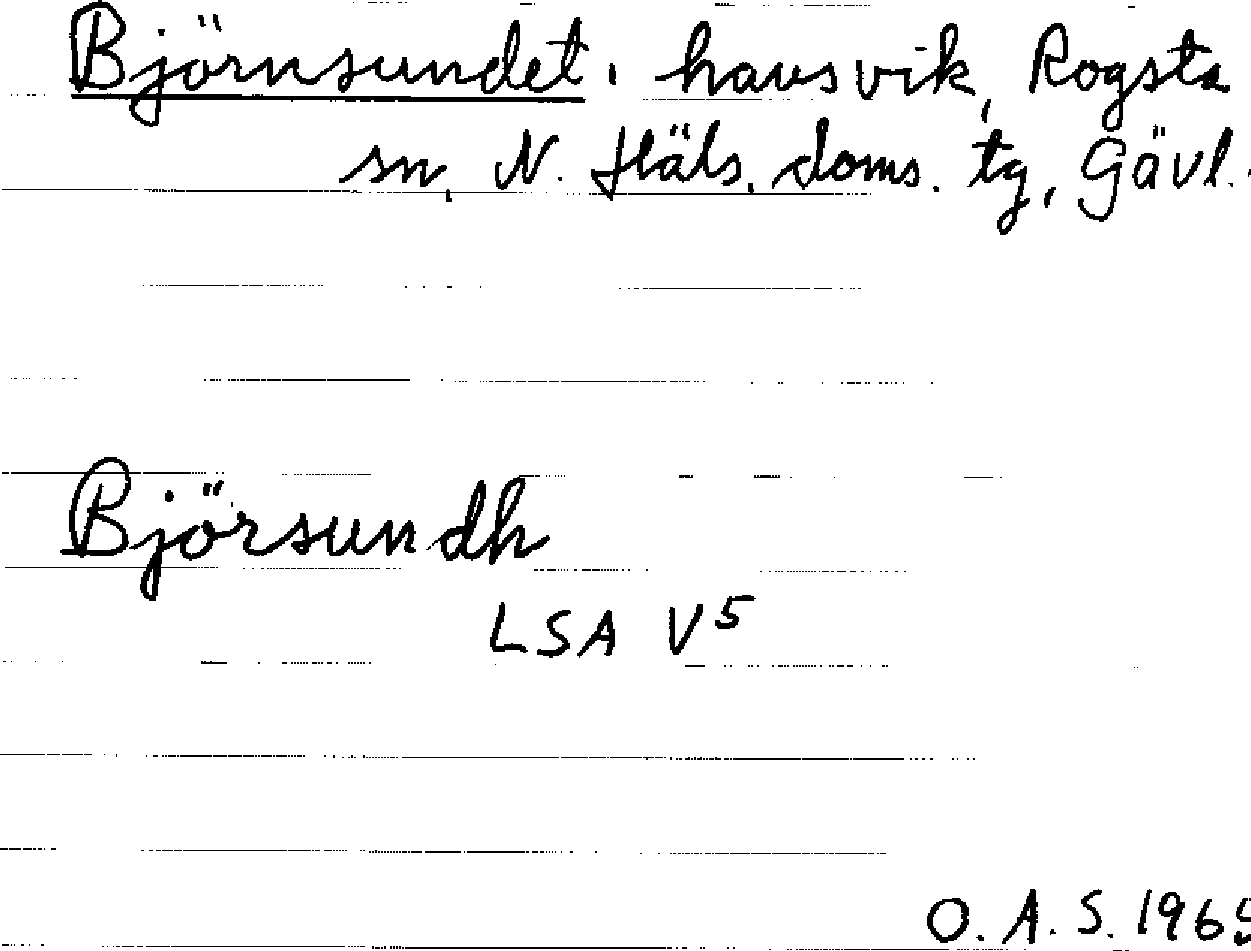 Björnsundet, havsvik, Rogsta
sn, N. Häls. doms. tg, Gävl.
Björsundh
LSA V5
O. A. S. 1965